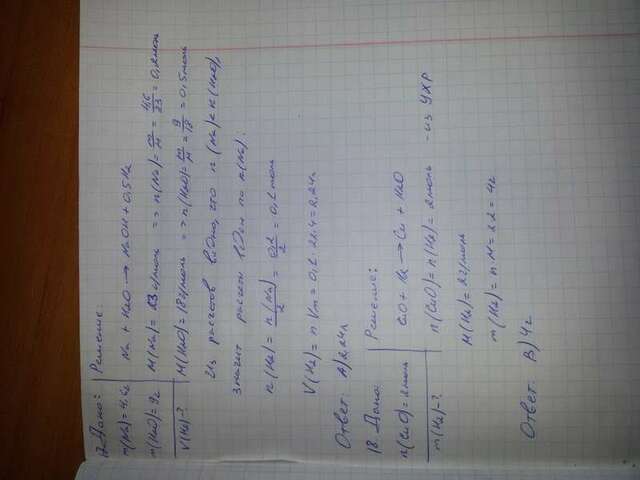 17. Дано: Решение:
m(Na)=4,6г Na + H2O → NaOH + 0,5H2
m(H2O)=9г M(Na)= 23 г/моль => n(Na)= m/M = 4,6/23 = 0,2моль
V(H2)-? M(H2O)=18г/моль => n(H2O)= m/M = 9/18 = 0,5моль
Из расчетов видно, что n(Na)<n(H2O),
значит расчеты ведем по n(Na).
n(H2)= n(Na)/2 = 0,2/2 = 0,1моль
V(H2)= n Vm = 0,1 · 22,4=2,24л
Ответ: А) 2,24л
18. Дано: Решение:
n(CuO)=2моль CuO + H2 → Cu + H2O
m(H2)-? n(CuO)=n(H2)= 2моль - из УХР
M(H2)= 2г/моль
m(H2)= n·M=2·2= 4г
Ответ: В) 4г